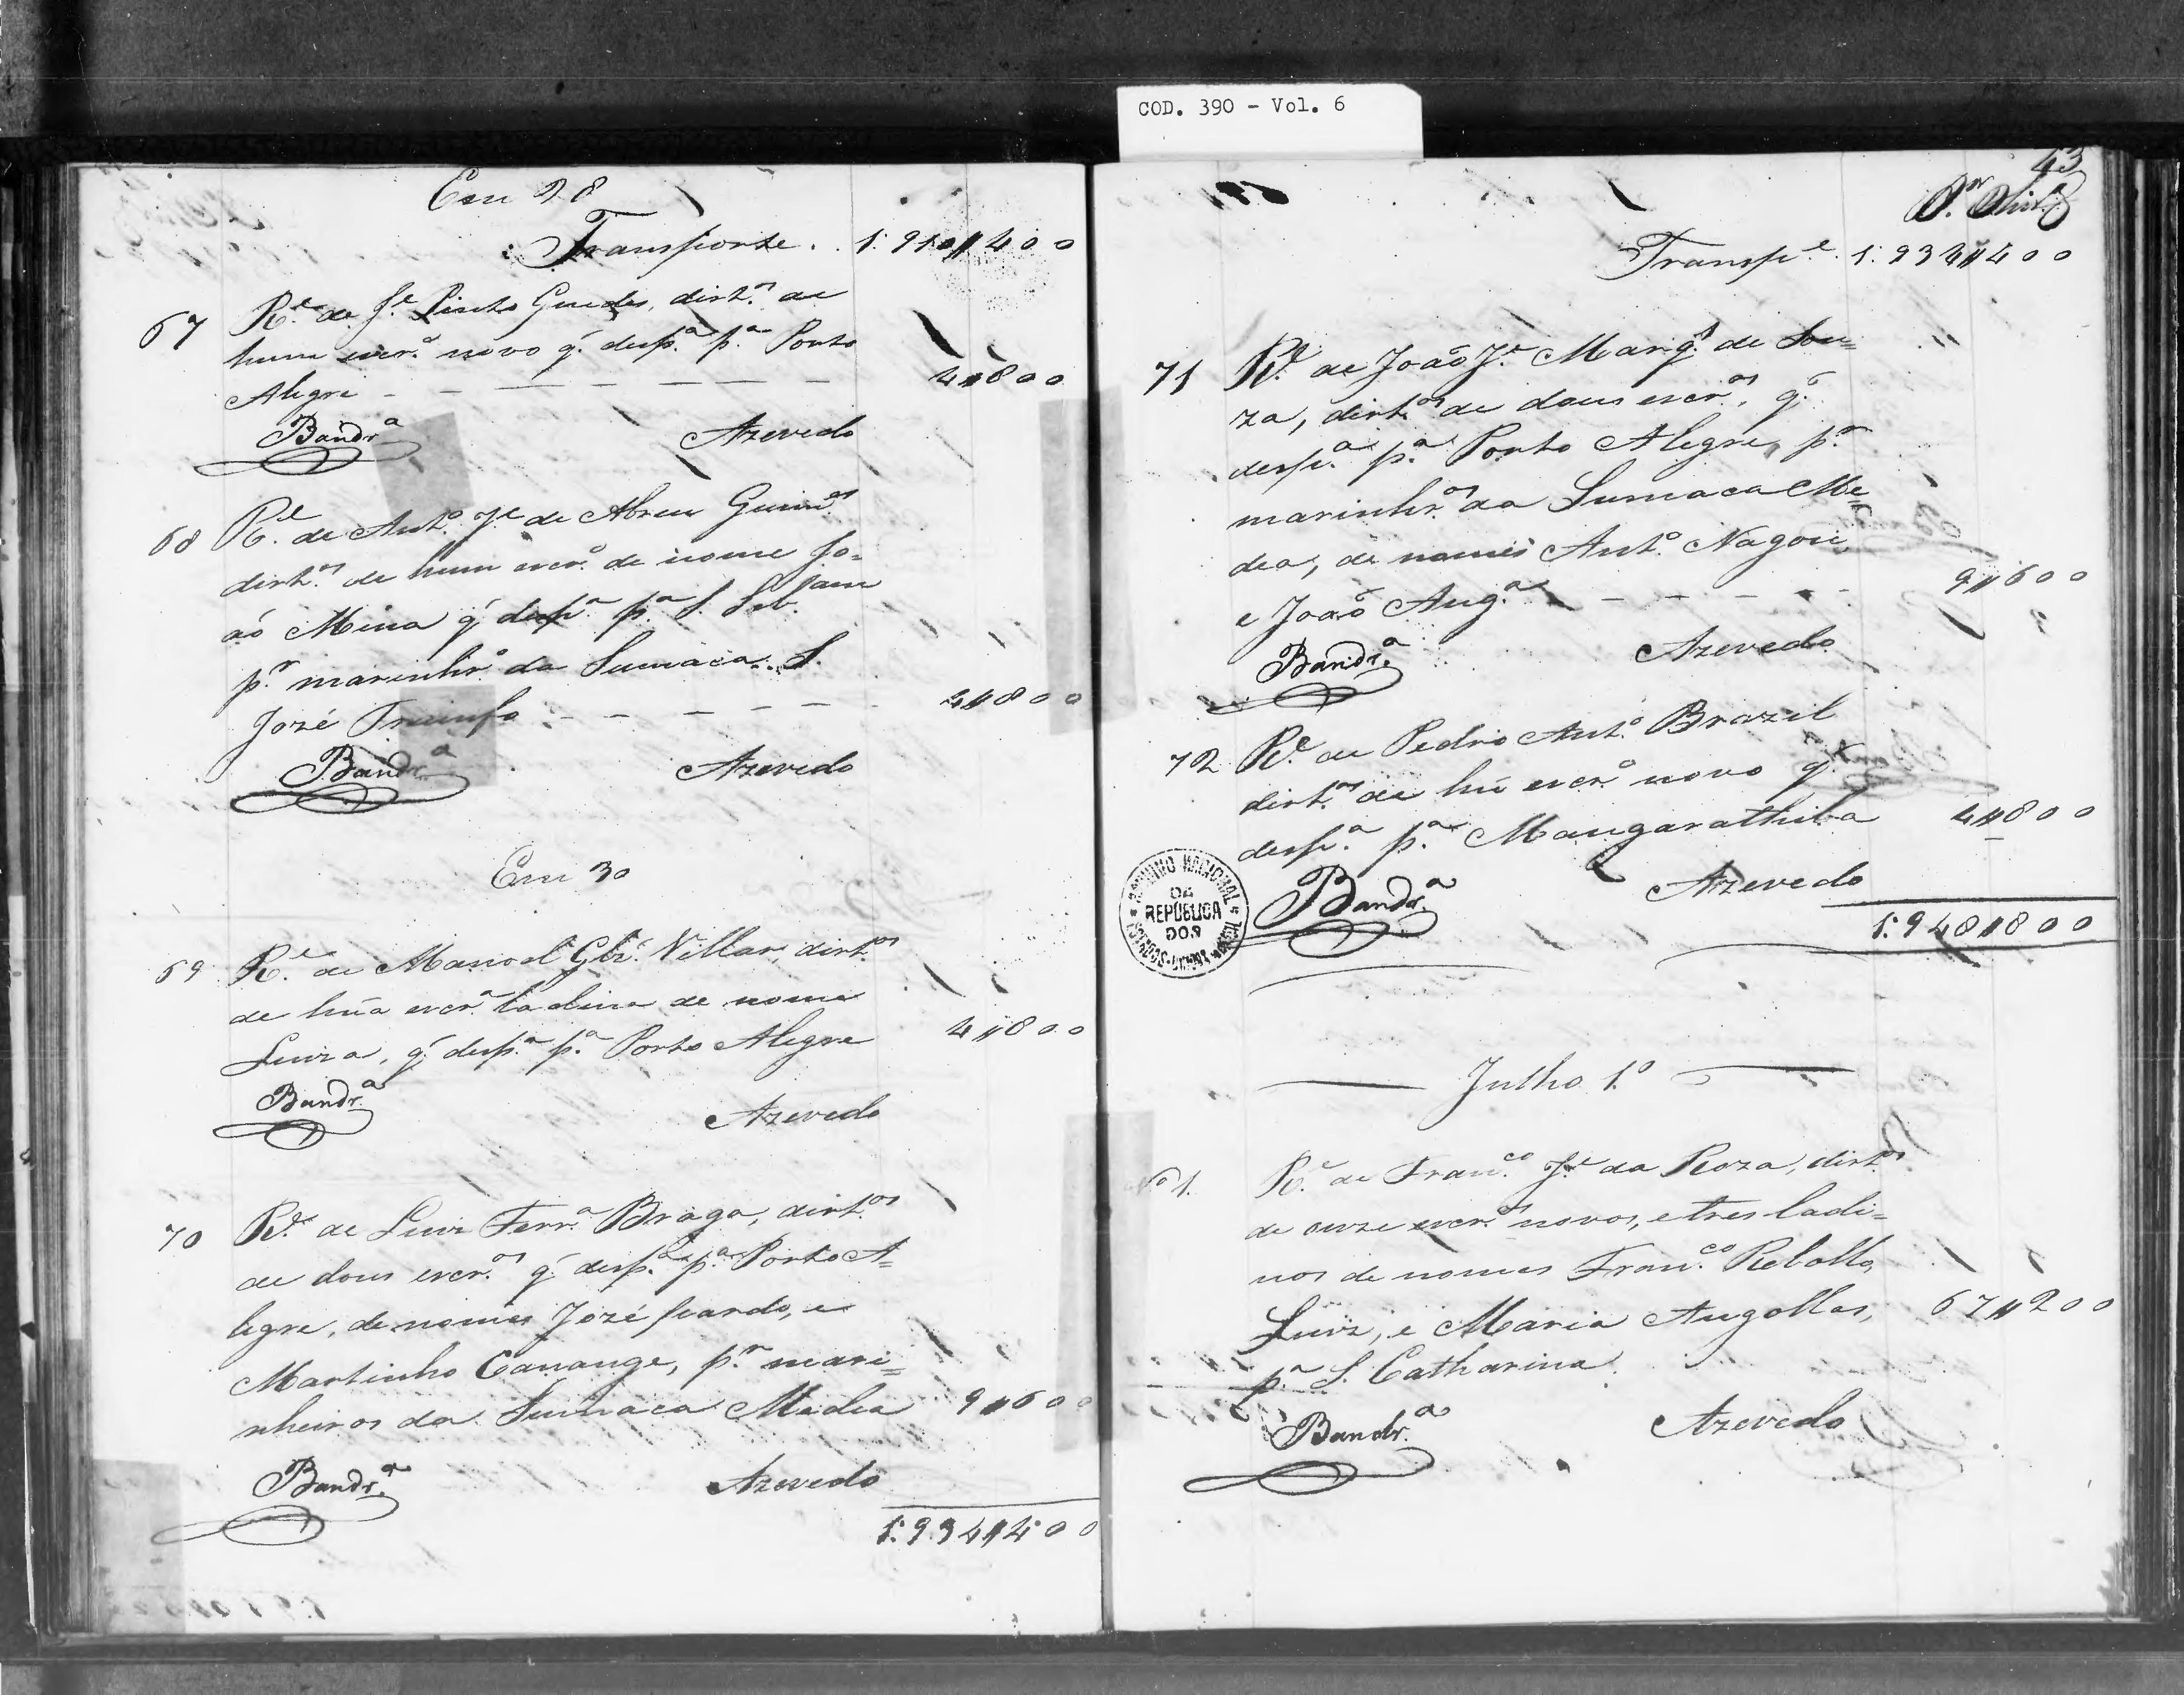 COD. 390 - Vol. 6
Em 28
Transporte . 1:910$400
67 R.e de J.e Pinto Guedes, dirt.os de
hum escr.o novo q.' desp.a p.a Porto
Alegre 4$800
Bandr.a Azevedo
68 R.e de Ant.o J.e de Abreu Guim.es
dirt.os de hum escr.o de nome Jo=
aõ Mina q.' desp.a p.a S. Seb.am
p.r marinhr.o da Sumaca S.
José Triunfo 4$800
Bandr.a Azevedo
Em 30
69 R.e de Manoel Glz.' Villar, dirt.os
de hũa escr.a ladina de nome
Luiza, q.' desp.a p.a Porto Alegre 4$800
Bandr.a Azevedo
70 R.e de Luiz Ferr.a Braga, dirt.os
de dous escr.os q.' desp.a p.a Porto A=
legre, de nomes José pardo, e
Martinho Canange, p.r mari=
nheiros da Sumaca Medea 9$600
Bandr.a Azevedo
1:934$400
43
Transp.e 1:934$400
71 R.e de João J.e Marq.s de Sou=
za, dirt.os de dous escr.os, q.'
desp.a p.a Porto Alegre, p.r
marinhr.os da Sumaca Me=
dea, de nomes Ant.o Nagou,
e João Ang.a 9$600
Bandr.a Azevedo
72 R.e de Pedro Ant.o Brazil
dirt.os de hũ escr.o novo q.'
desp.a p.a Mangarathiba 4$800
Bandr.a Azevedo
1:948$800
ARQUIVO NACIONAL
REPÚBLICA
DOS
Julho 1.o
1. R.e de Fran.co J.e da Roza, dirt.os
de onze escr.os novos, e tres ladi=
nos de nomes Fran.co Rebollo,
Luiz, e Maria Angollas, 67$200
p.a S. Catharina
Bandr.a Azevedo